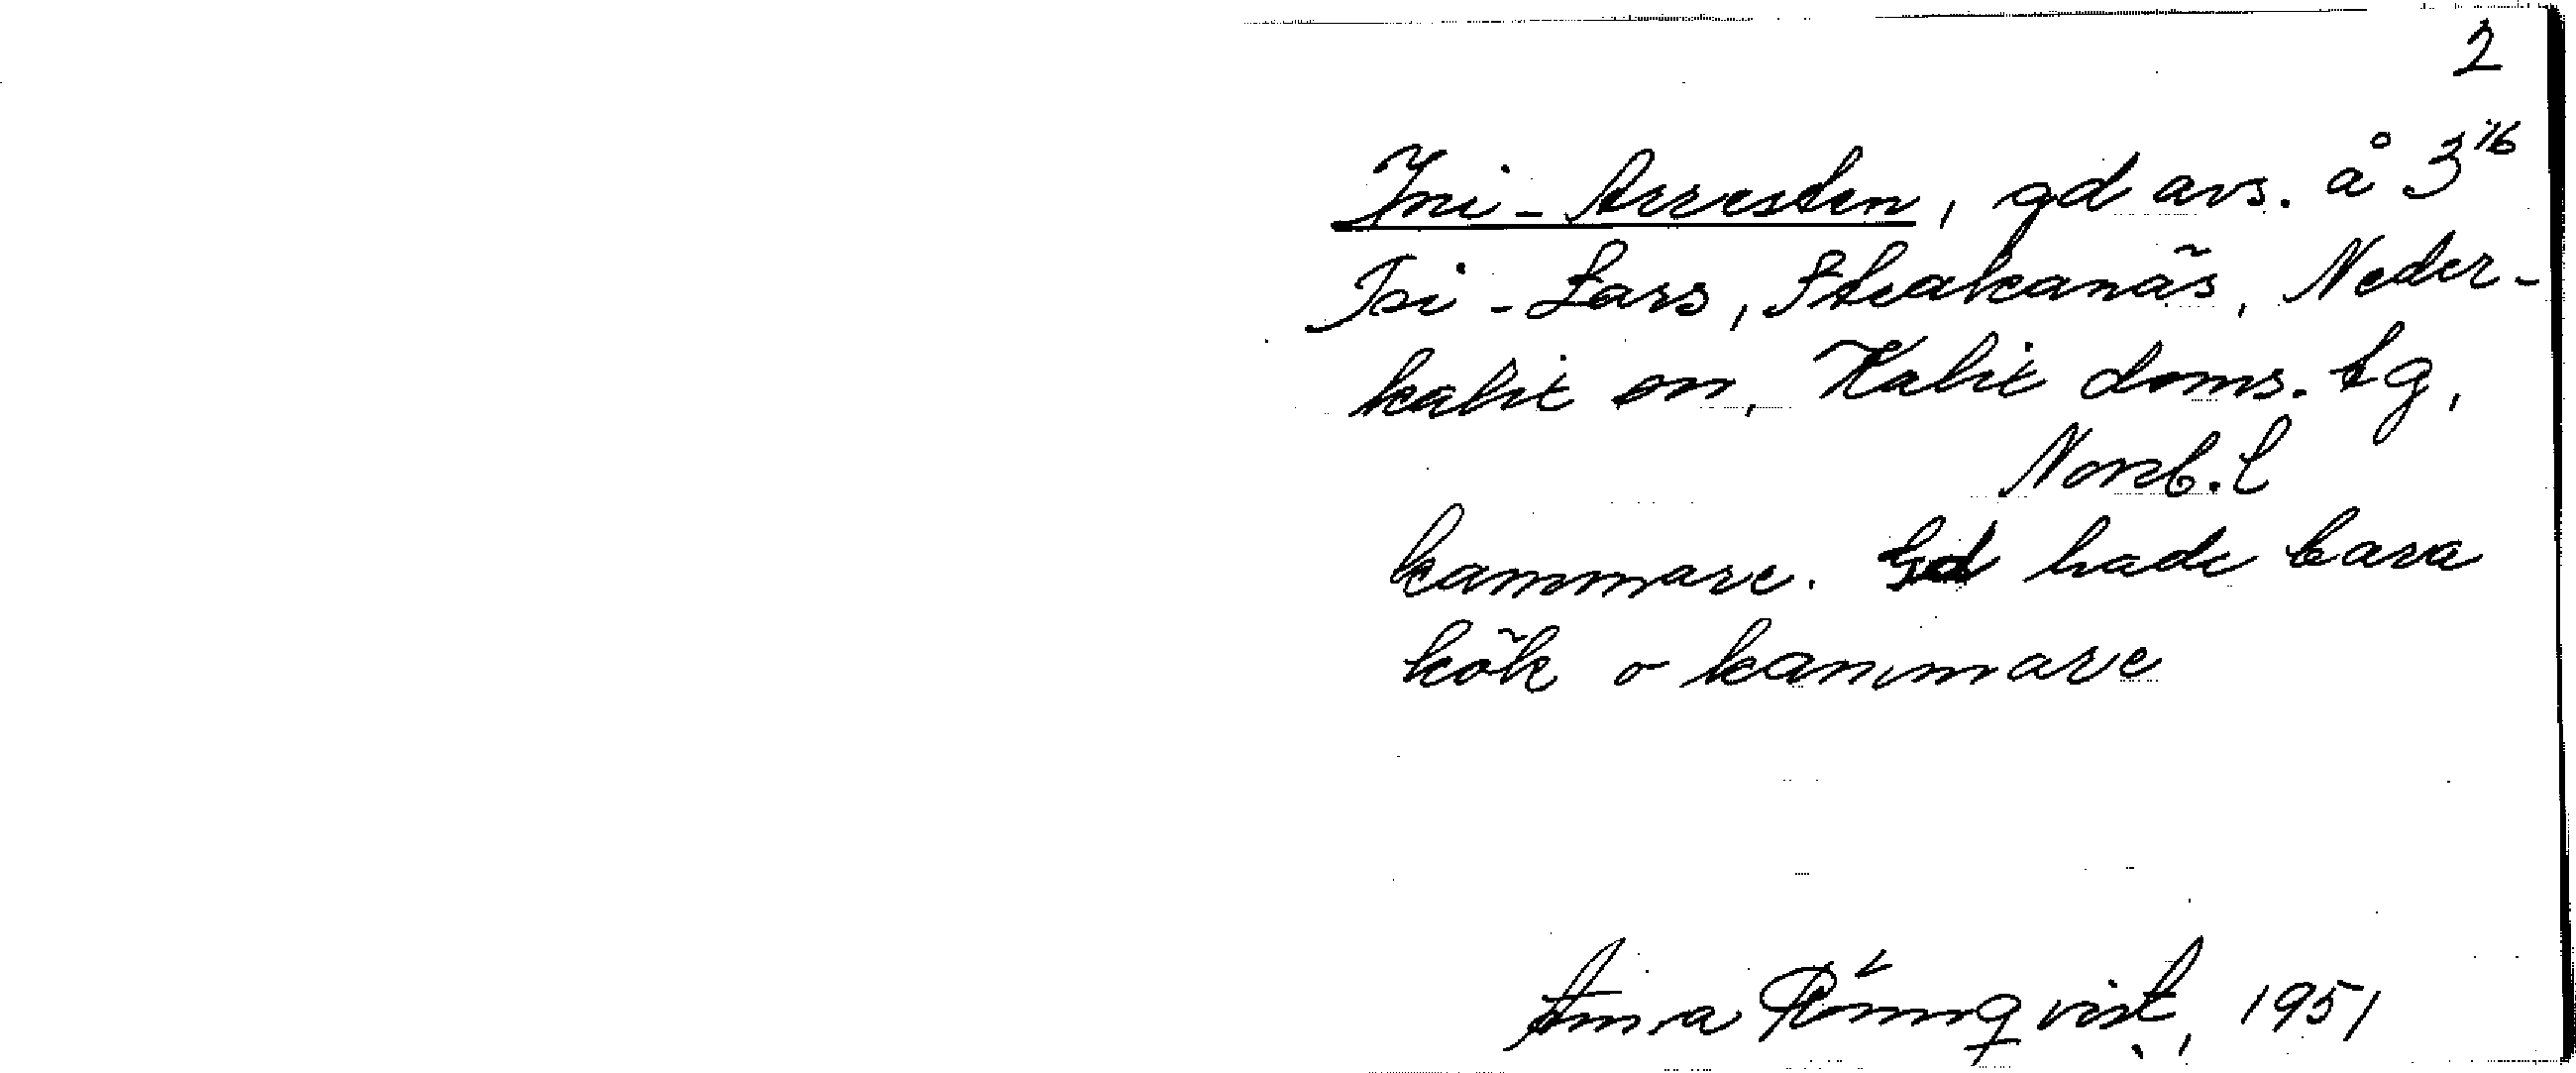 2
Ini-Arresten, gd avs. å 3¹⁶
Isi-Lars, Storkanäs, Neder-
kalix sn, Kalix doms. tg,
Norrb. l
kammare. Gd hade bara
kök o kammare
Anna Rönnqvist, 1951